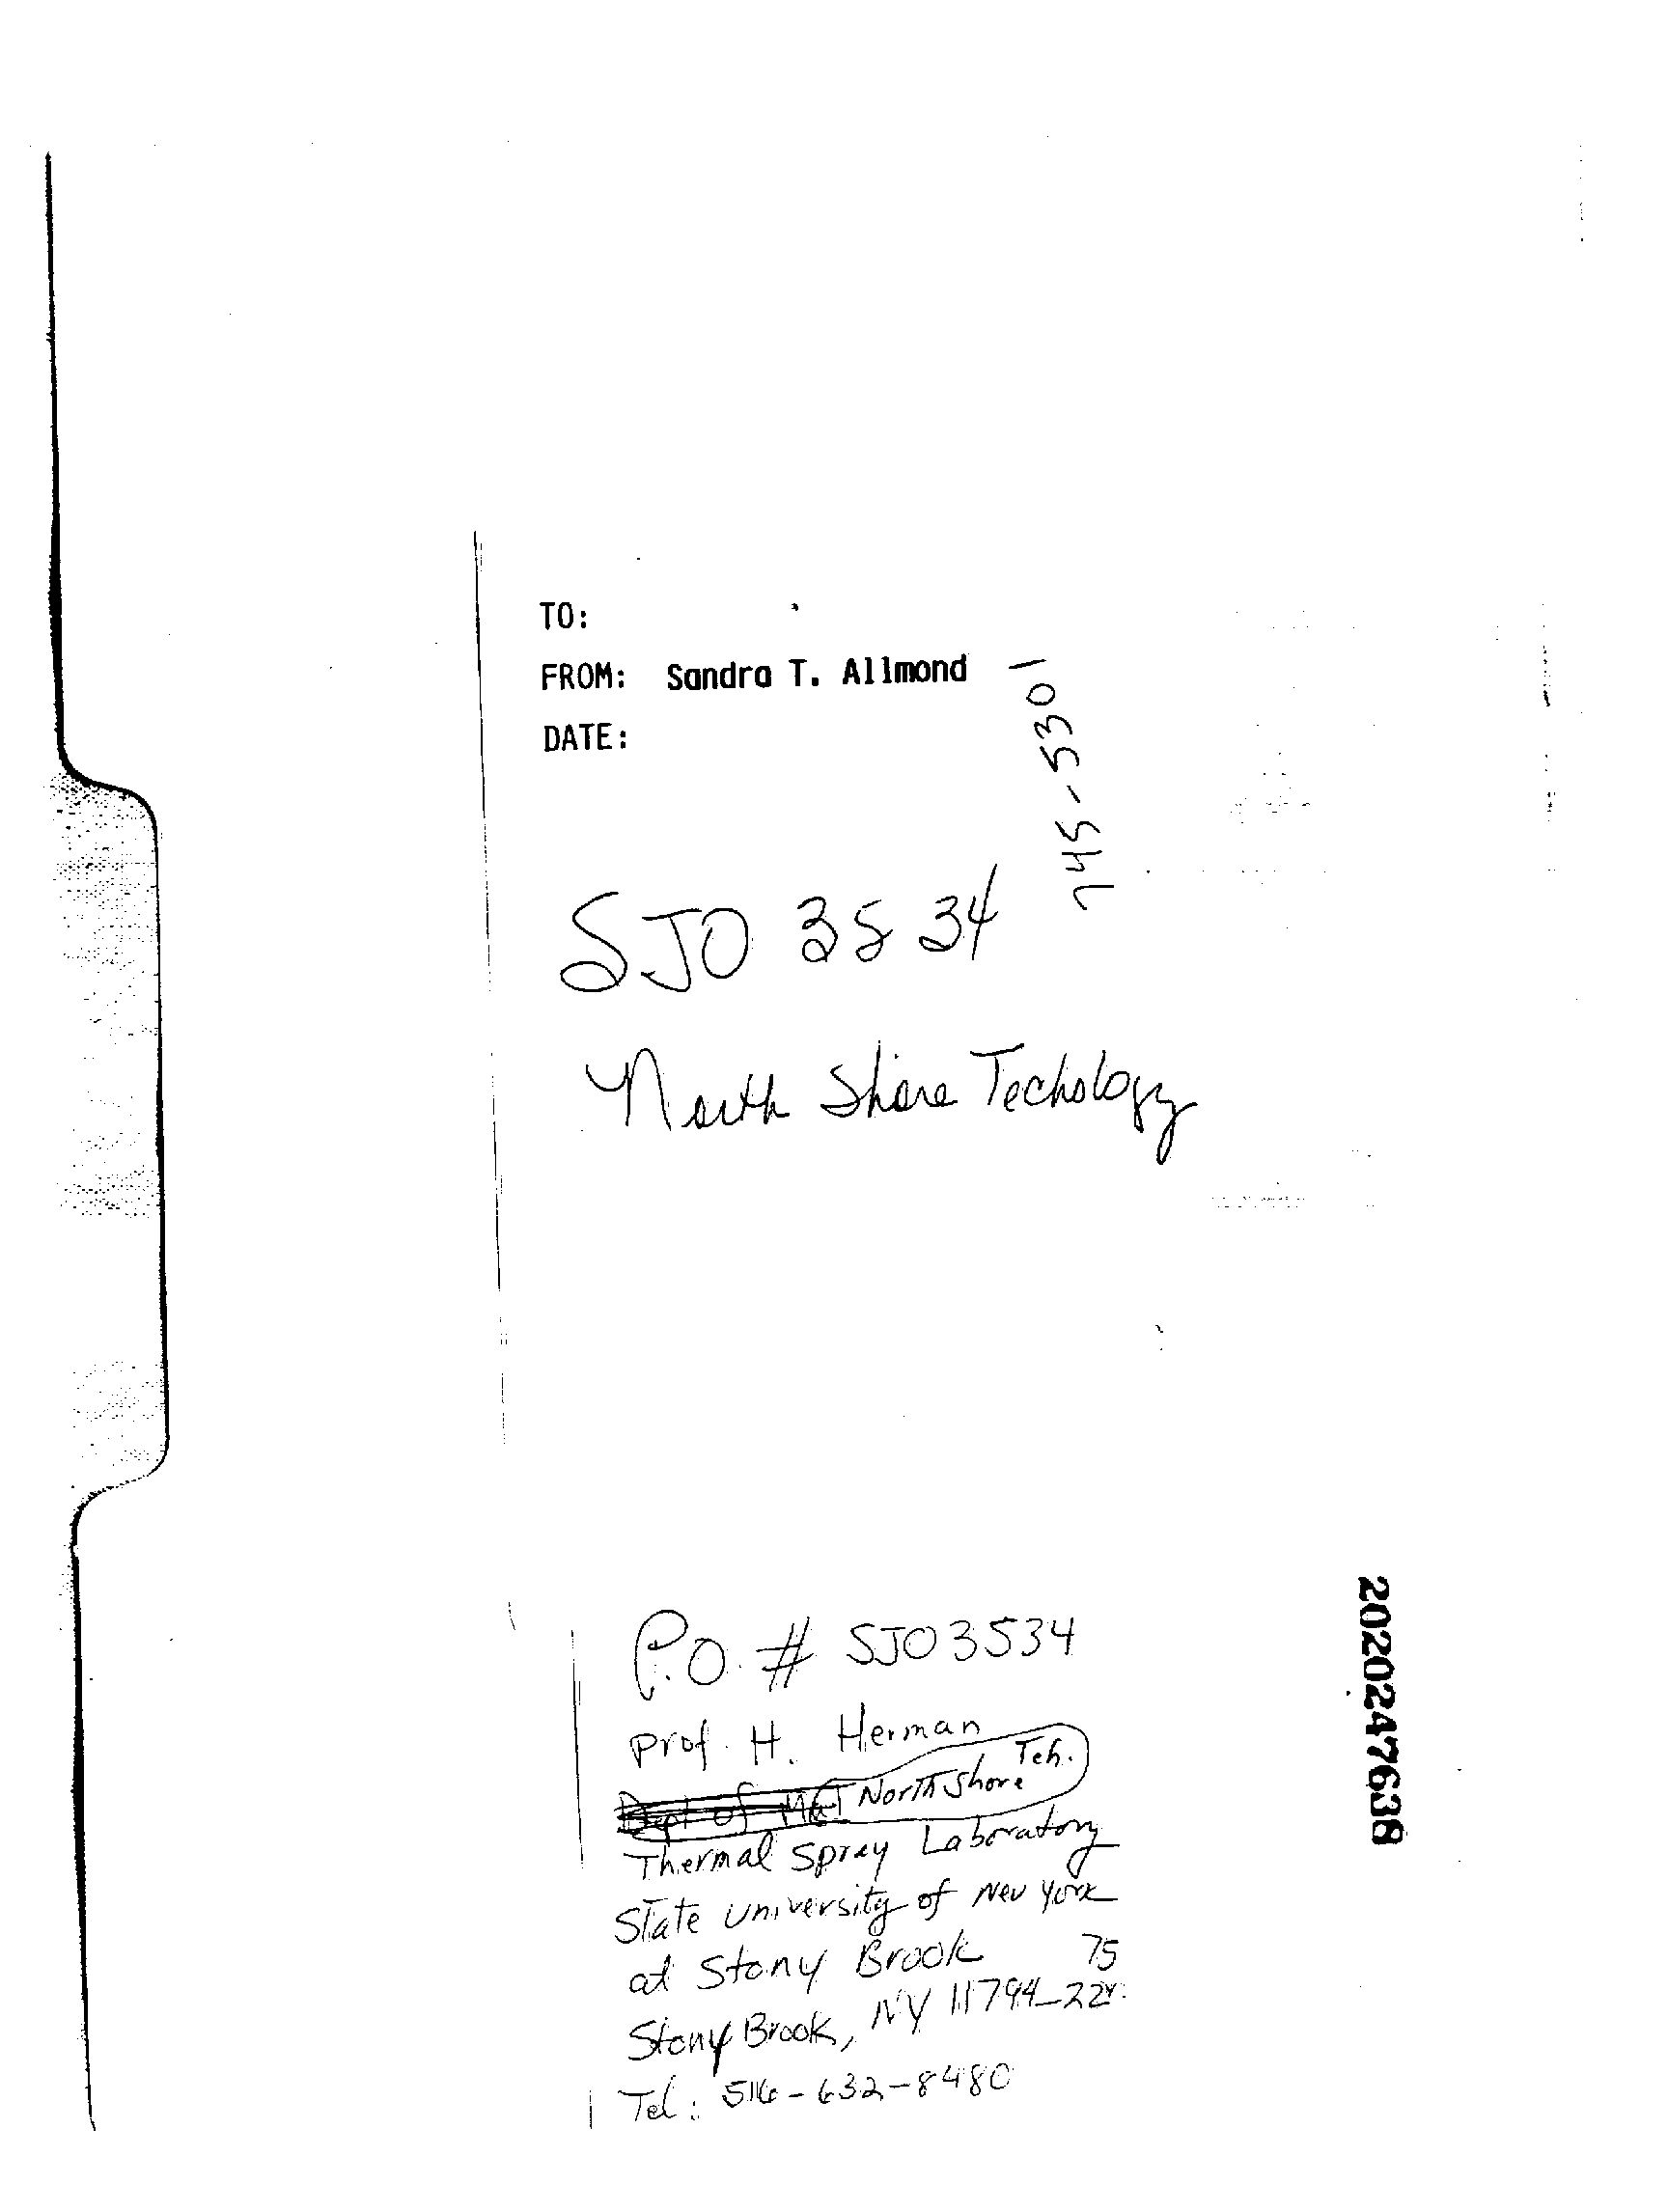 TO:
FROM: Sandra T. Allmond
DATE:
745-5301
SJO 3534
North Shore Techology
P.O. # SJO3534
Prof. H. Herman
Dept of Mat North Shore Teh.
Thermal Spray Laboratory
State University of New York
at Stony Brook
75
Stony Brook, NY 11794-22
Tel: 516-632-8480
2020247638